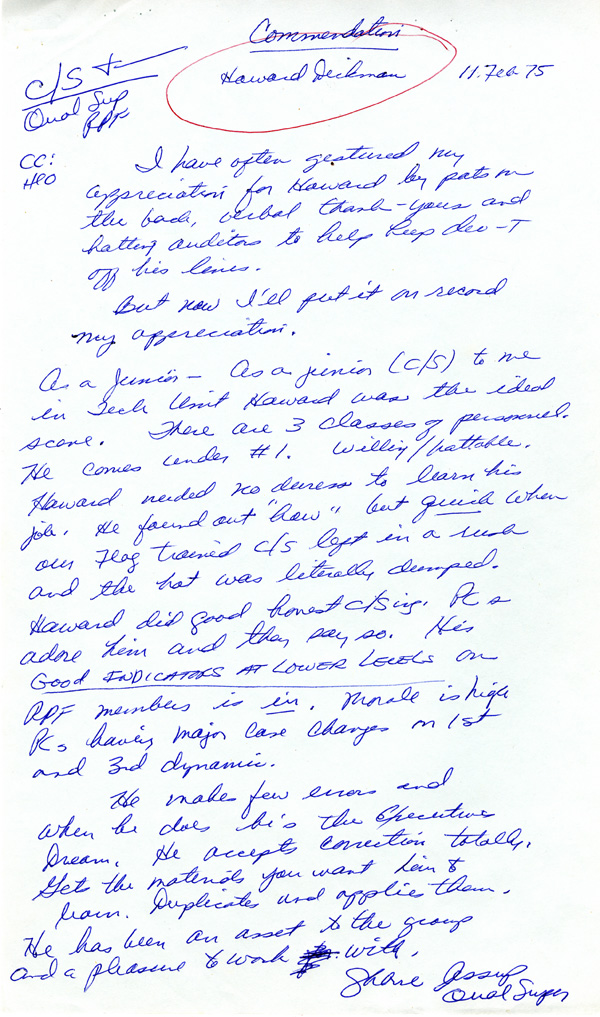 Commendation
Howard Dickman
11 Feb 75
C/S
Qual Sup
RPF
CC:
HCO
I have often gestured my
appreciation for Howard by pats on
the back, verbal thank-yous and
hatting auditors to help keep dev-T
off his lines.
But now I'll put it on record
my appreciation.
As a Junior - As a junior (C/S) to me
in Tech Unit Howard was the ideal
scene. There are 3 classes of personnel.
He comes under #1. Willing/hattable.
Howard needed no duress to learn his
job. He found out "how" but quick when
our Flag trained C/S left in a rush
and the hat was literally dumped.
Howard did good honest C/Sing. Pcs
adore him and they say so. His
GOOD INDICATORS AT LOWER LEVELS on
RPF members is in. Morale is high
Pcs having major case changes on 1st
and 3rd dynamic.
He makes few errors and
when he does he's the Executives
Dream. He accepts correction totally.
Gets the materials you want him to
learn. Duplicates and applies them.
He has been an asset to the group
and a pleasure to work with.
Qual Super